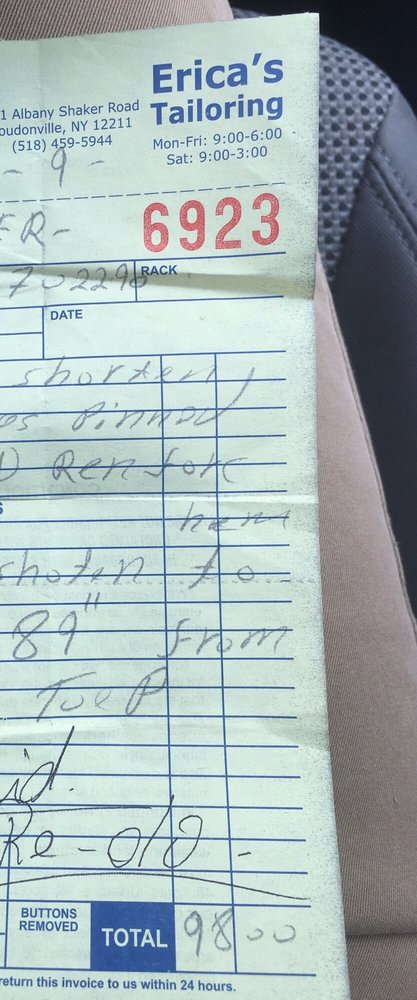 Erica's
Tailoring
1 Albany Shaker Road
oudonville, NY 12211
(518) 459-5944
Mon-Fri: 9:00-6:00
Sat: 9:00-3:00
- 9 -
ER-
6923
702296
RACK
DATE
shorten
os Pinned
D Renforc
S
hem
shoten to
89" from
Toe P
id.
Re-do -
BUTTONS
REMOVED
TOTAL
98 00
return this invoice to us within 24 hours.